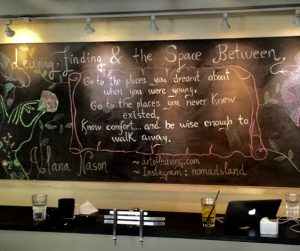 Leaving, Finding & the Space Between
Go to the places you dreamt about
when you were young,
Go to the places you never knew
existed,
Know comfort... and be wise enough to
walk away.
Alana Nason
~ artofleaving.com
~ Instagram: nomadsland